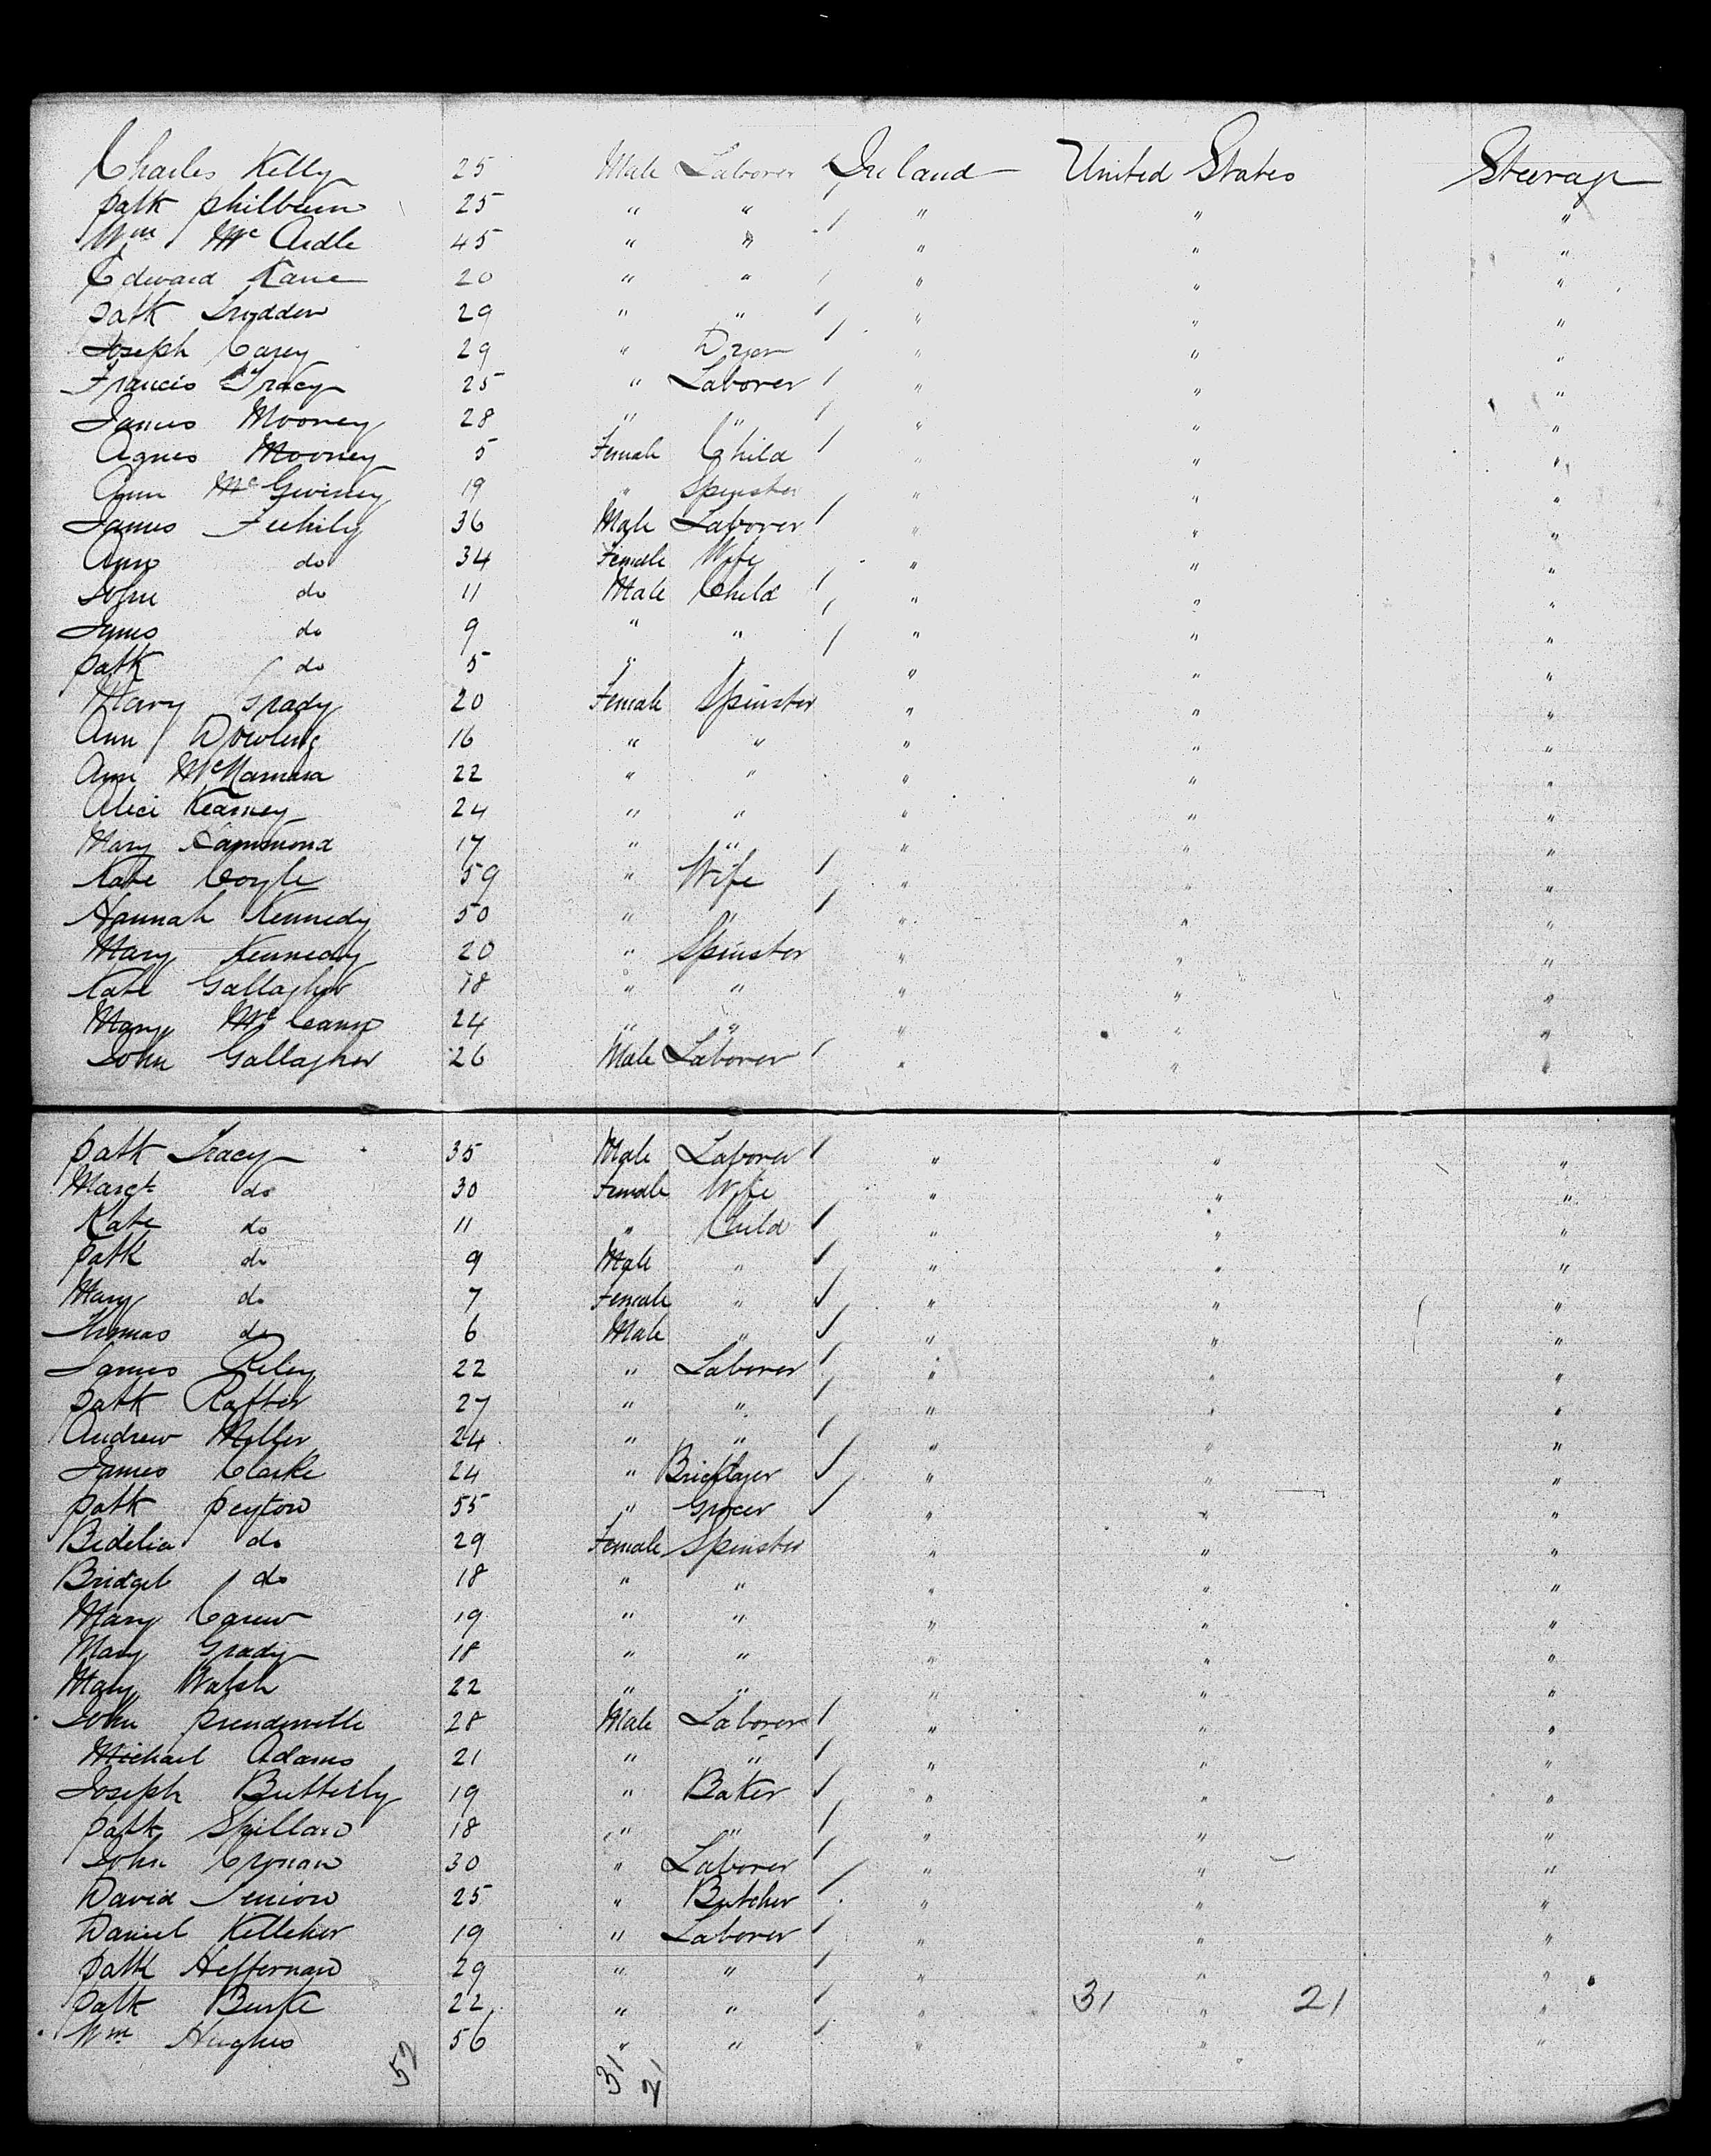 Charles Kelly 25 Male Laborer Ireland United States Steerage
Patk Philbin 25 " " " " "
Wm McArdle 45 " " " " "
Edward Kane 20 " " " " "
Patk 29 " " " " "
Joseph Casey 29 " Dyer " " "
Francis Tracy 25 " Laborer " " "
James Mooney 28 " " " " "
Agnes Mooney 5 Female Child " " "
Ann 19 " Spinster " " "
James Feehily 36 Male Laborer " " "
Ann do 34 Female Wife " " "
John do 11 Male Child " " "
James do 9 " " " " "
Patk do 5 " " " " "
Mary Grady 20 Female Spinster " " "
Ann Dowling 16 " " " " "
Ann McNamara 22 " " " " "
Alice Kearney 24 " " " " "
Mary Hammond 17 " " " " "
Kate Coyle 59 " Wife " " "
Hannah Kennedy 50 " " " " "
Mary Kennedy 20 " Spinster " " "
Kate Gallagher 18 " " " " "
Mary McCann 24 " " " " "
John Gallagher 26 Male Laborer " " "
Patk Tracy 35 Male Laborer " " "
Margt do 30 Female Wife " " "
Kate do 11 " Child " " "
Patk do 9 Male " " " "
Mary do 7 Female " " " "
Thomas do 6 Male " " " "
James Riley 22 " Laborer " " "
Patk Rafter 27 " " " " "
Andrew Miller 24 " " " " "
James Clarke 24 " Bricklayer " " "
Patk Peyton 55 " Grocer " " "
Bedelia do 29 Female Spinster " " "
Bridget do 18 " " " " "
Mary Carew 19 " " " " "
Mary Grady 18 " " " " "
Mary Walsh 22 " " " " "
John Prendeville 28 Male Laborer " " "
Michael Adams 21 " " " " "
Joseph Butterly 19 " Baker " " "
Patk Spillan 18 " " " " "
John Cronan 30 " Laborer " " "
David 25 " Butcher " " "
Daniel Kelleher 19 " Laborer " " "
Patk Heffernan 29 " " " " "
Patk Burke 22 " " " 31 " 21 "
Wm Hughes 56 " " " " "
52 31 21